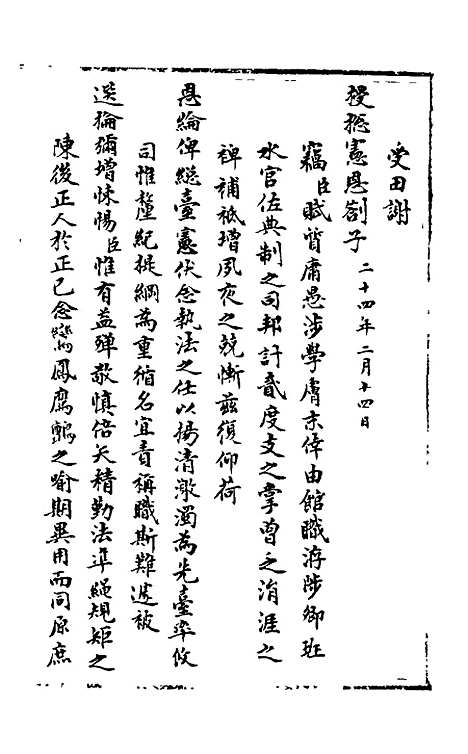 受田謝
授總憲恩劄子 二十四年二月十四日
竊臣賦質庸愚涉學膚末倖由館職洊陟卿班
水官佐典制之司邦計貳度支之掌曾乏涓涯之
裨補祗增夙夜之兢慚茲復仰荷
恩綸俾總臺憲伏念執法之任以揚清激濁為先臺率攸
司惟釐紀提綱為重循名宜責稱職斯難遽被
遴掄彌增悚惕臣惟有益殫敬慎倍矢精勤法準繩規矩之
陳後正人於正己念鸞鳳鷹鸇之喻期異用而同原庶